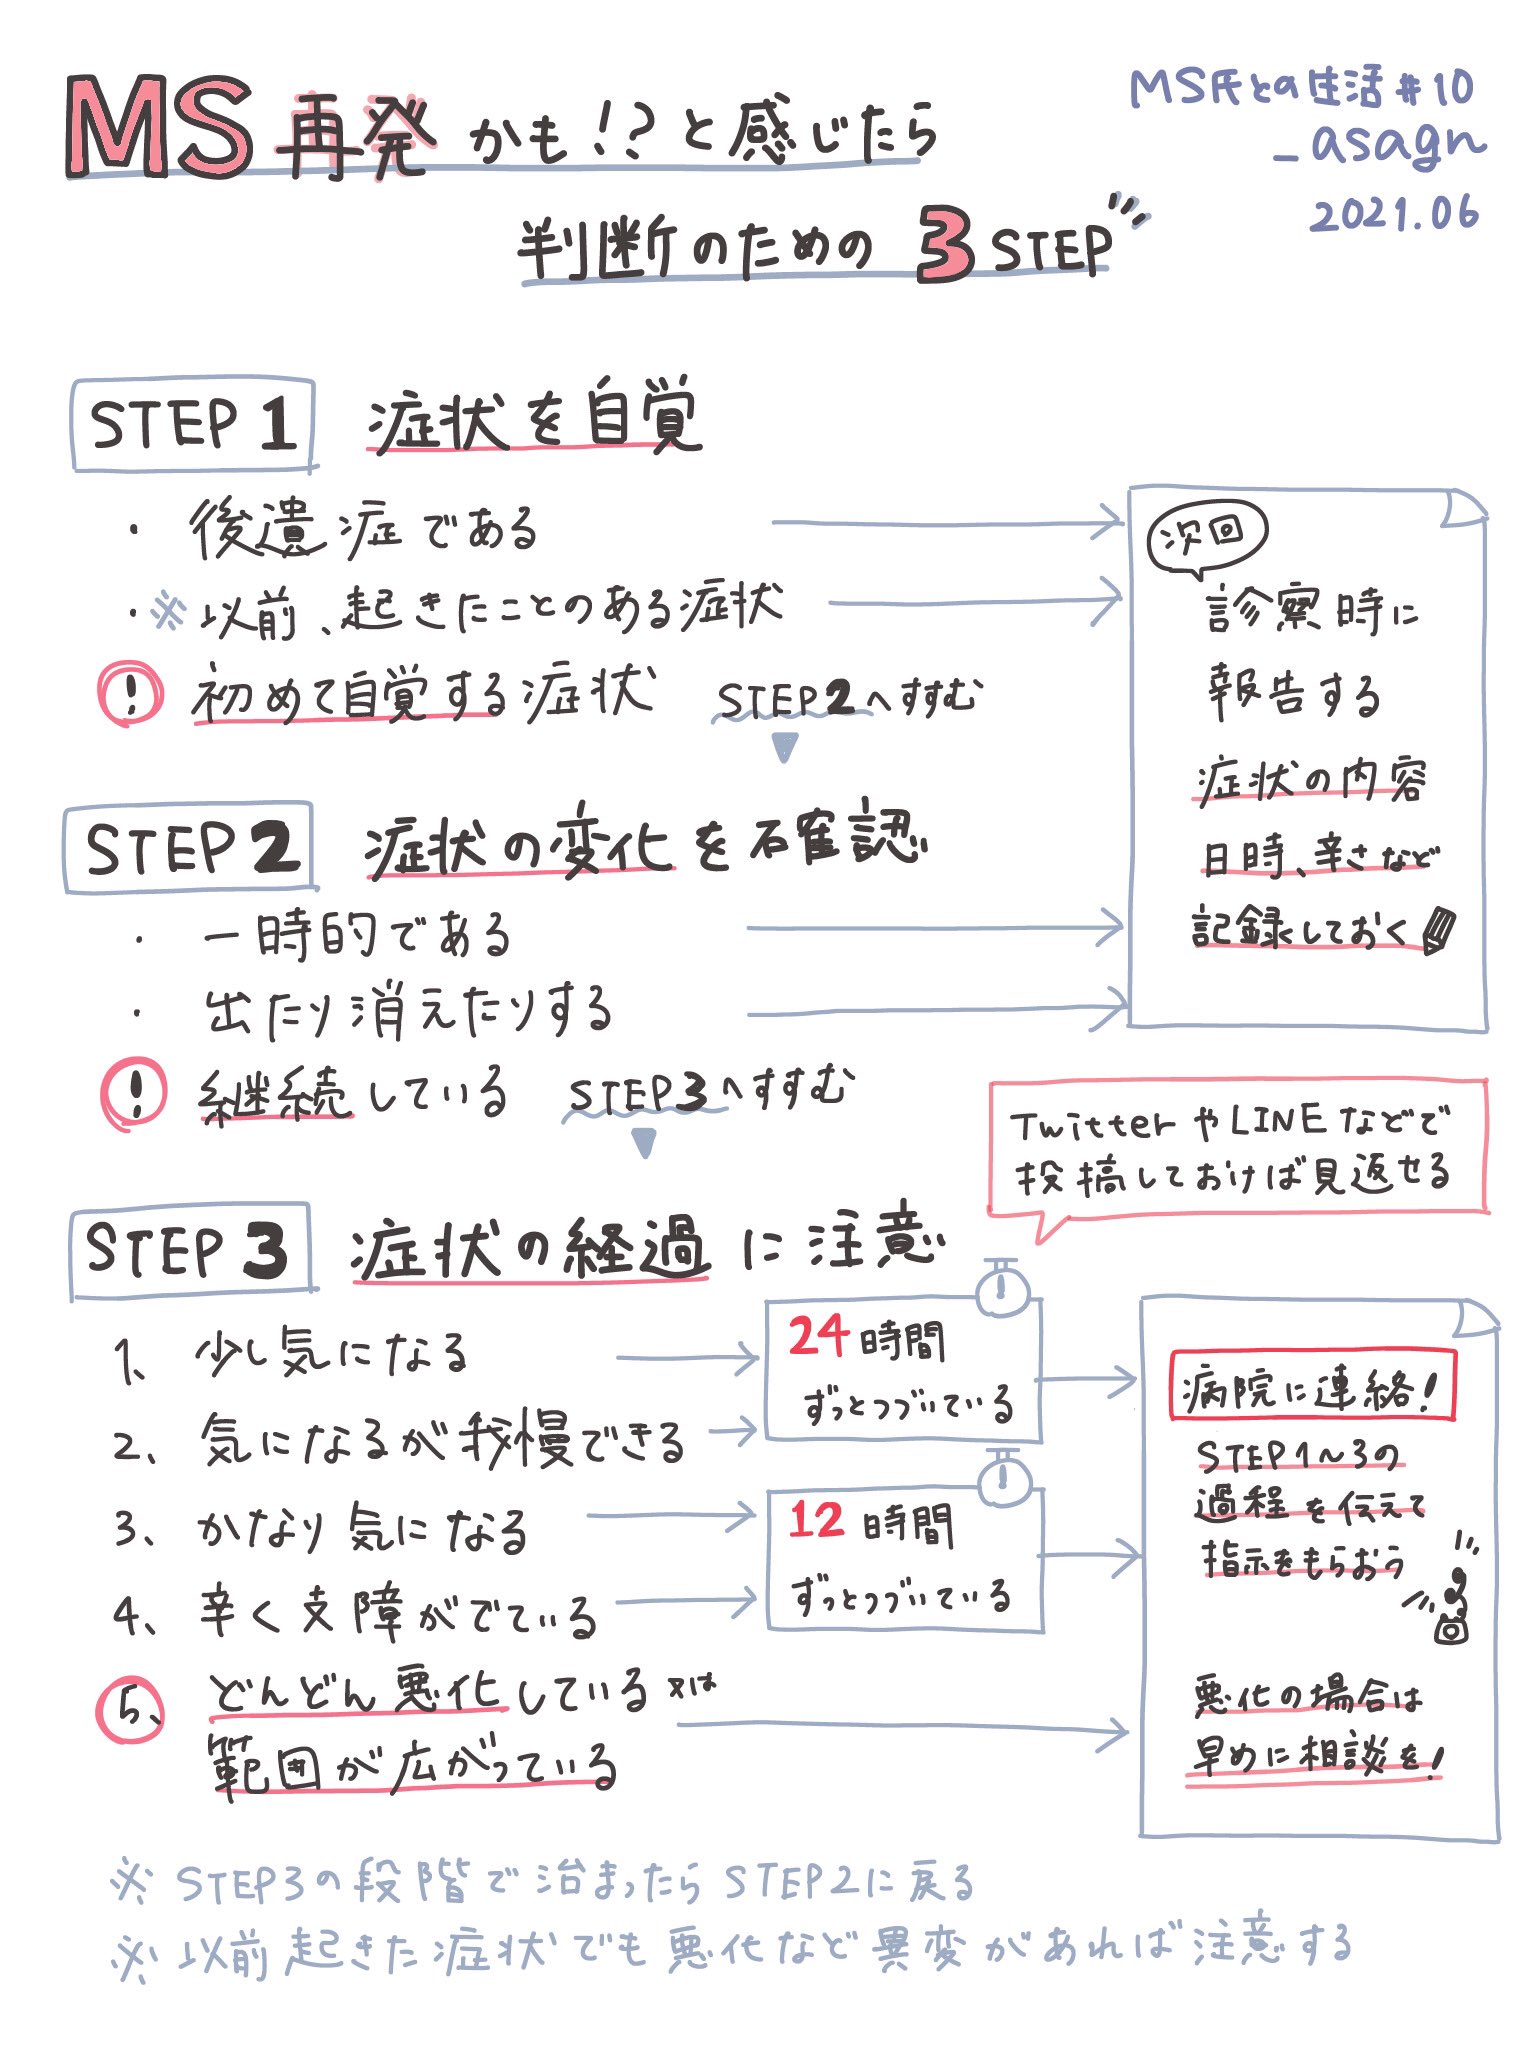 MS再発かも!?と感じたら
判断のための3STEP
MS氏との生活#10
_asagn
2021.06
STEP1 症状を自覚
・後遺症である
・※以前、起きたことのある症状
! 初めて自覚する症状 STEP2へすすむ
次回
診察時に
報告する
症状の内容
日時、辛さなど
記録しておく
STEP2 症状の変化を確認
・一時的である
・出たり消えたりする
! 継続している STEP3へすすむ
TwitterやLINEなどで
投稿しておけば見返せる
STEP3 症状の経過に注意
1、少し気になる
2、気になるが我慢できる
24時間
ずっとつづいている
3、かなり気になる
4、辛く支障がでている
12時間
ずっとつづいている
5、どんどん悪化している又は
範囲が広がっている
病院に連絡!
STEP1〜3の
過程を伝えて
指示をもらおう
悪化の場合は
早めに相談を!
※STEP3の段階で治まったらSTEP2に戻る
※以前起きた症状でも悪化など異変があれば注意する